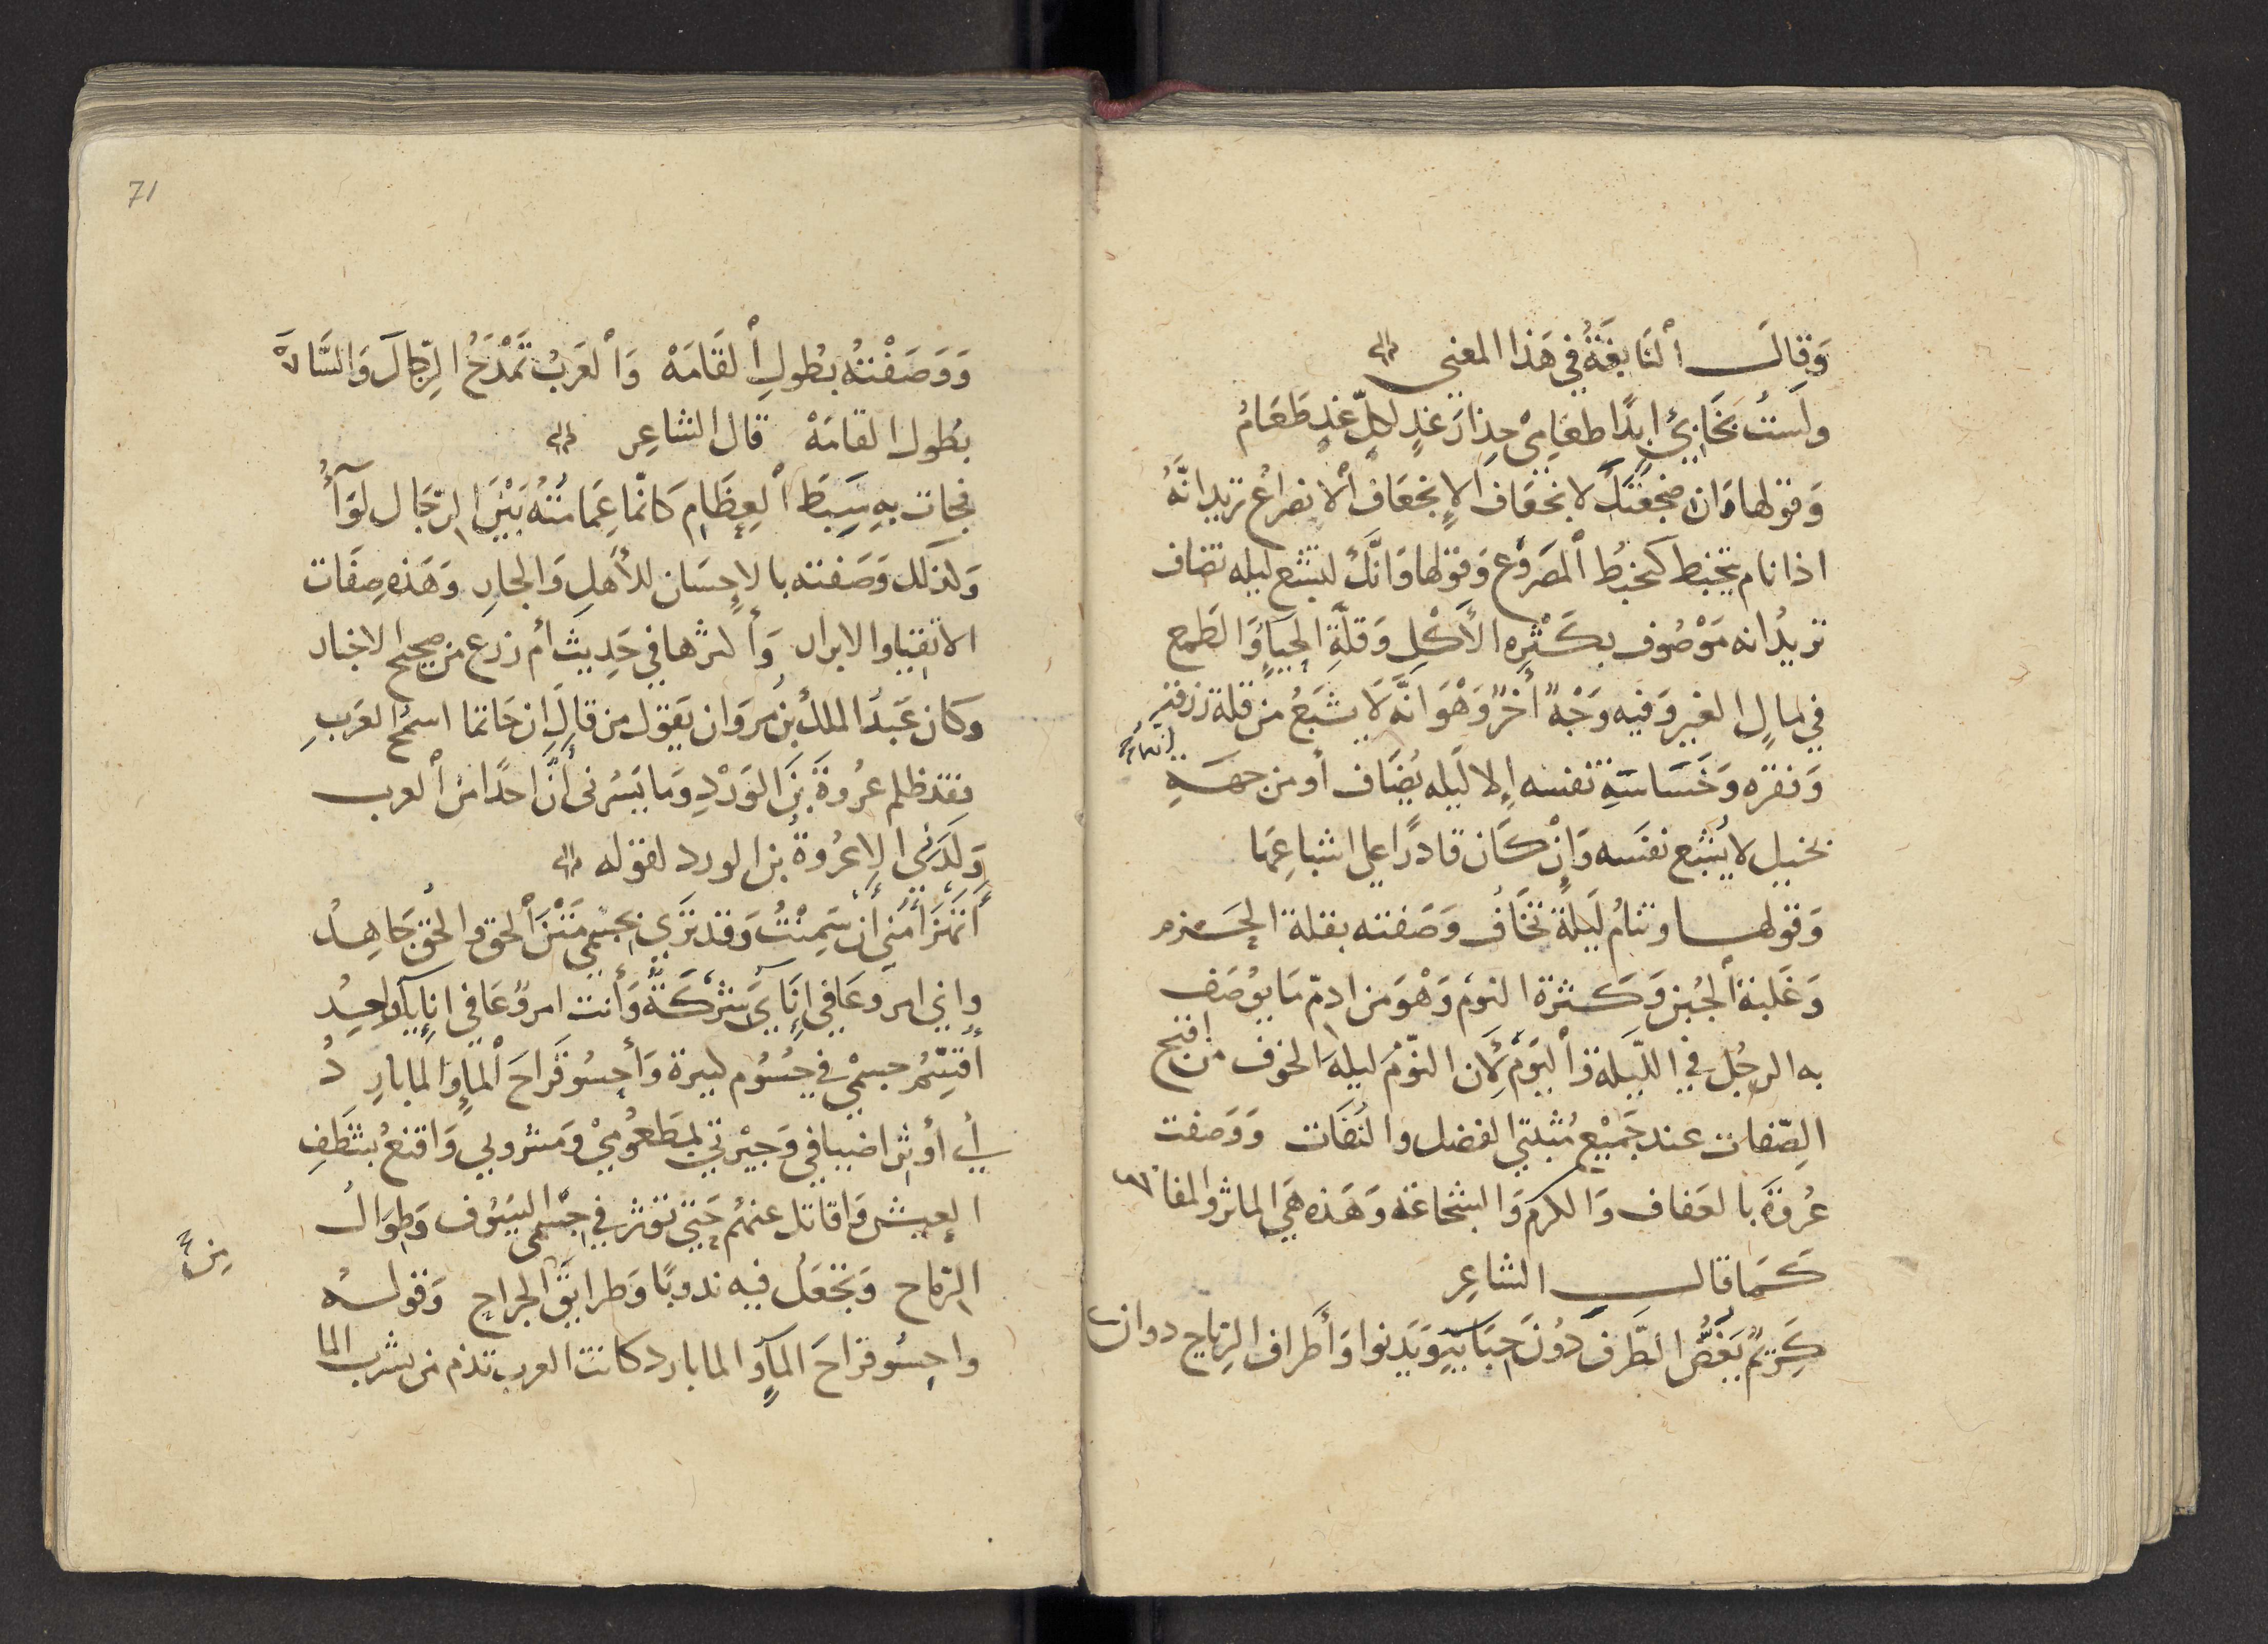 وَقَالَ اْلنَابِغَةُ في هَذا المعنى
ولَستُ بخَابئٍ ابدًا طعَامِيْ حِذارَ غدٍ لكلّ غدٍ طَعَامُ
وَقولها وَان ضجعَتَكَ لانجعَاف الإنجعَافُ اْلانصراعُ تريد انَّهُ
اذا نام يتخبط كتخبُط اْلمَصروُع وَقولها وَانَّكَ لتشبَع ليله تضاف
تريدُ انه مَوْصُوف بكَثْرِه الأَكْلِ وَقلَّةِ الحيَاءِ وَالطَمِع
في مالِ الغير وَفيه وَجْهٌ أخرُ وَهْوَ انَّه لَا يشبَعُ من قلة رزقه
وَفقره وَخَسَاسَةِ نفسه إلا لَيله يُضَاف أو من جهَةِ انهاُ
بخيل لا يُشبَع نفسَه وَإنْ كَان قادرًا علي اشباعِهَا
وَقولها وتنامُ لَيلةَ تخَافُ وَصَفته بقلة الحَزم
وَغَلبة اْلجُبن وَكَثرة النوم وَهْوَ من اذمّ مَا يوُصَف
به الرجُل في الليَلة وَاْليَوْم لِأَن النّوْمَ ليلةَ الخوف من اقبح
الصِّفات عند جَميْع مُثبتي الفضل وَالنفَات وَوَصَفت
عُروَةَ بالعَفاف وَالكرَم وَالشجَاعَه وَهَذه هَي الماثر والمفاخر
كَمَا قالَ الشاعِر
كَرِيْمٌ يَغُضُّ الطَّرفَ دُوْنَ حِبَابِيهِ وَيَدنوا وَأَطراف الرِماح دوان
71
وَوَصَفْتهُ بطُولِ اْلقَامَهْ وَاْلعَربُ تَمْدَحُ الرِّجَالَ وَالسَّادَة
بطُول القامَهْ قال الشاعِر
فجات بهِ سبَطَ اْلعِظَامِ كَانّما عِمَامَتهُ بَيْنَ الرّجَال لوَآءُ
وَلذلك وَصَفته بالإحسَان للأهَلِ وَالجارِ وَهَذه صِفَات
الاتقيا والابرار وَأكثرها في حَدِيث اُم زرع من صحيح الاخبار
وكان عَبدُ الملكُ بنُ مروَان يَقول من قالَ ان حَاتما اسمَحُ العَربِ
فقد ظلم عُروَةَ بنَ الوَرْدِ وَما يَسُرنى أنَّ احدًا منْ اْلعرب
وَلَدَنِى الا عُروَةُ بن الورد لقوله
أتَهْزَأُ مِني أن سَمِنْتُ وَقد تَرَي بجسمْى مَسَّ اْلحَق والحقُ جَاهِدُ
واني امروٌ عَافي إنَايَ شركَةٌ وَأنت امروٌ عَافي انائكَ واحِدُ
أقسِّمُ جسميْ في جُسُوم كثيرة وَأحسُو قَراحَ اْلماءِ وَالما بارِدُ
أي أوثر اضيافي وَجيْرتي بمطعوُميْ وَمشروبي وَاقنعُ بشَظَفِ
العيش وَاقاتل عنهُم حَتى تؤثر في جسْمي السيَوُف وَطِوَالُ
الرماح وَتجعَلُ فيه ندوبًا وَطرايقَ الجراح وَقولهُ من
واحسُو قراحَ المآءِ والما بارد كانت العرب تذم من يشرب الما